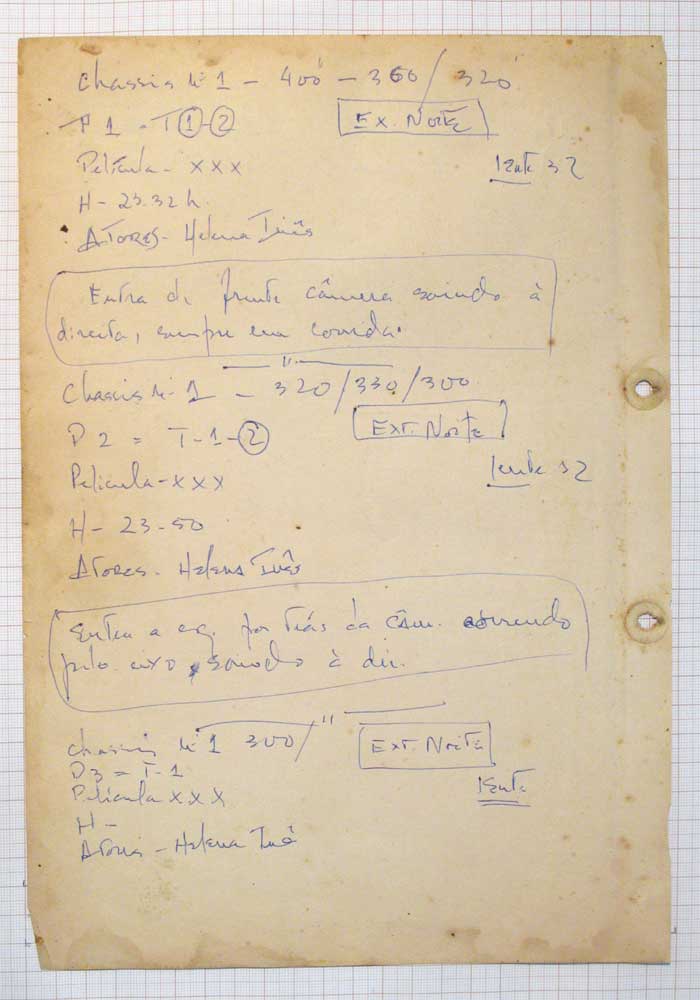 Chassis Nº 1 - 400 - 360 / 320
P 1 = T 1 - 2
Ex. Noite
Película - x x x
lente 32
H - 23.32 h.
ATORES - Helena Inês
Entra de frente câmera saindo à
direita, sempre em corrida.
"
Chassis Nº 1 - 320/330/300
P 2 = T-1-2
EXT. Noite
Película - x x x
lente 32
H - 23-50
ATORES - Helena Inês
Entra a esq. por trás da câm. correndo
pelo eixo, saindo à dir.
"
Chassis Nº 1 300/
EXT. Noite
P3 = T-1
Película x x x
lente
H -
Atores - Helena Inê